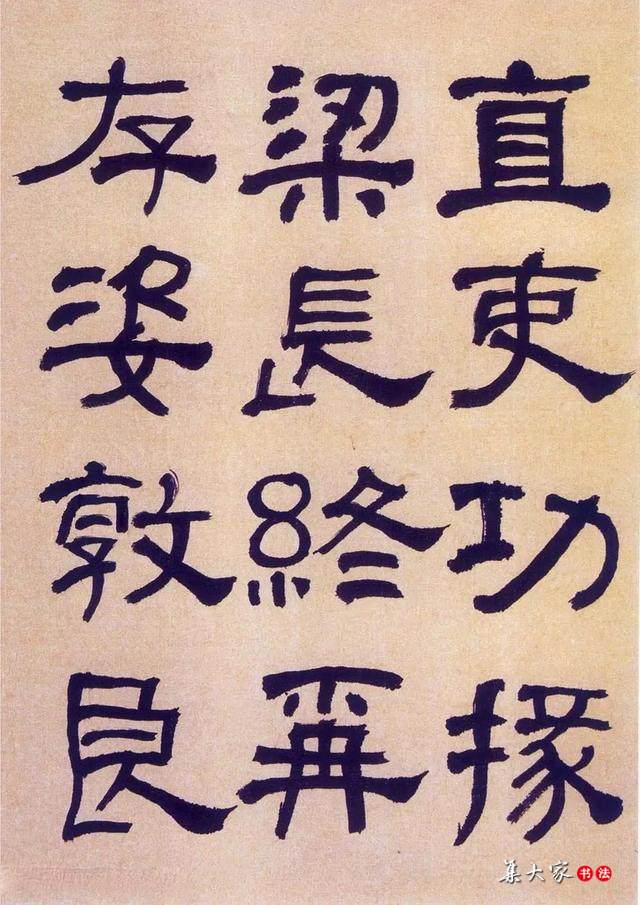 直吏功掾
梁長終再
存姿敦良
集大家书法